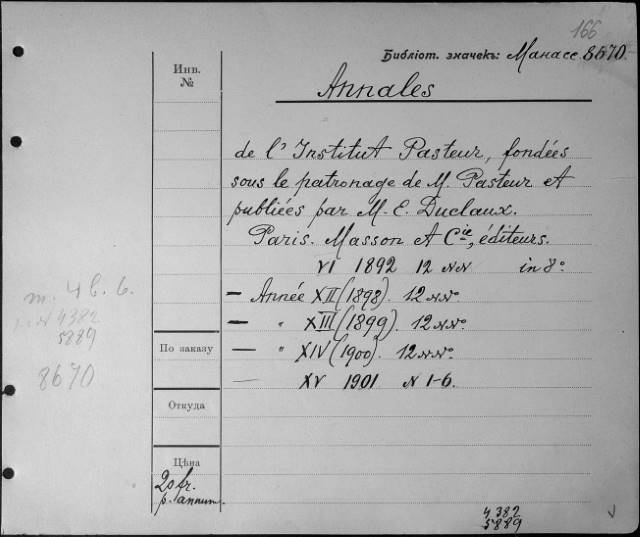 166
Библіот. значекъ: Манасе 8670.
Инв.
№
Annales
de l' Institut Pasteur, fondées
sous le patronage de M. Pasteur et
publiées par M. E. Duclaux.
Paris. Masson et Cie, éditeurs.
VI 1892 12 NN in 8°
— Année XII (1898). 12 NNo.
— " XIII (1899). 12 NNo.
— " XIV (1900). 12 NNo.
— XV 1901 N 1-6.
4382
5889
8670
По заказу
Откуда
Цѣна
20 fr.
p. annum.
4382
5889